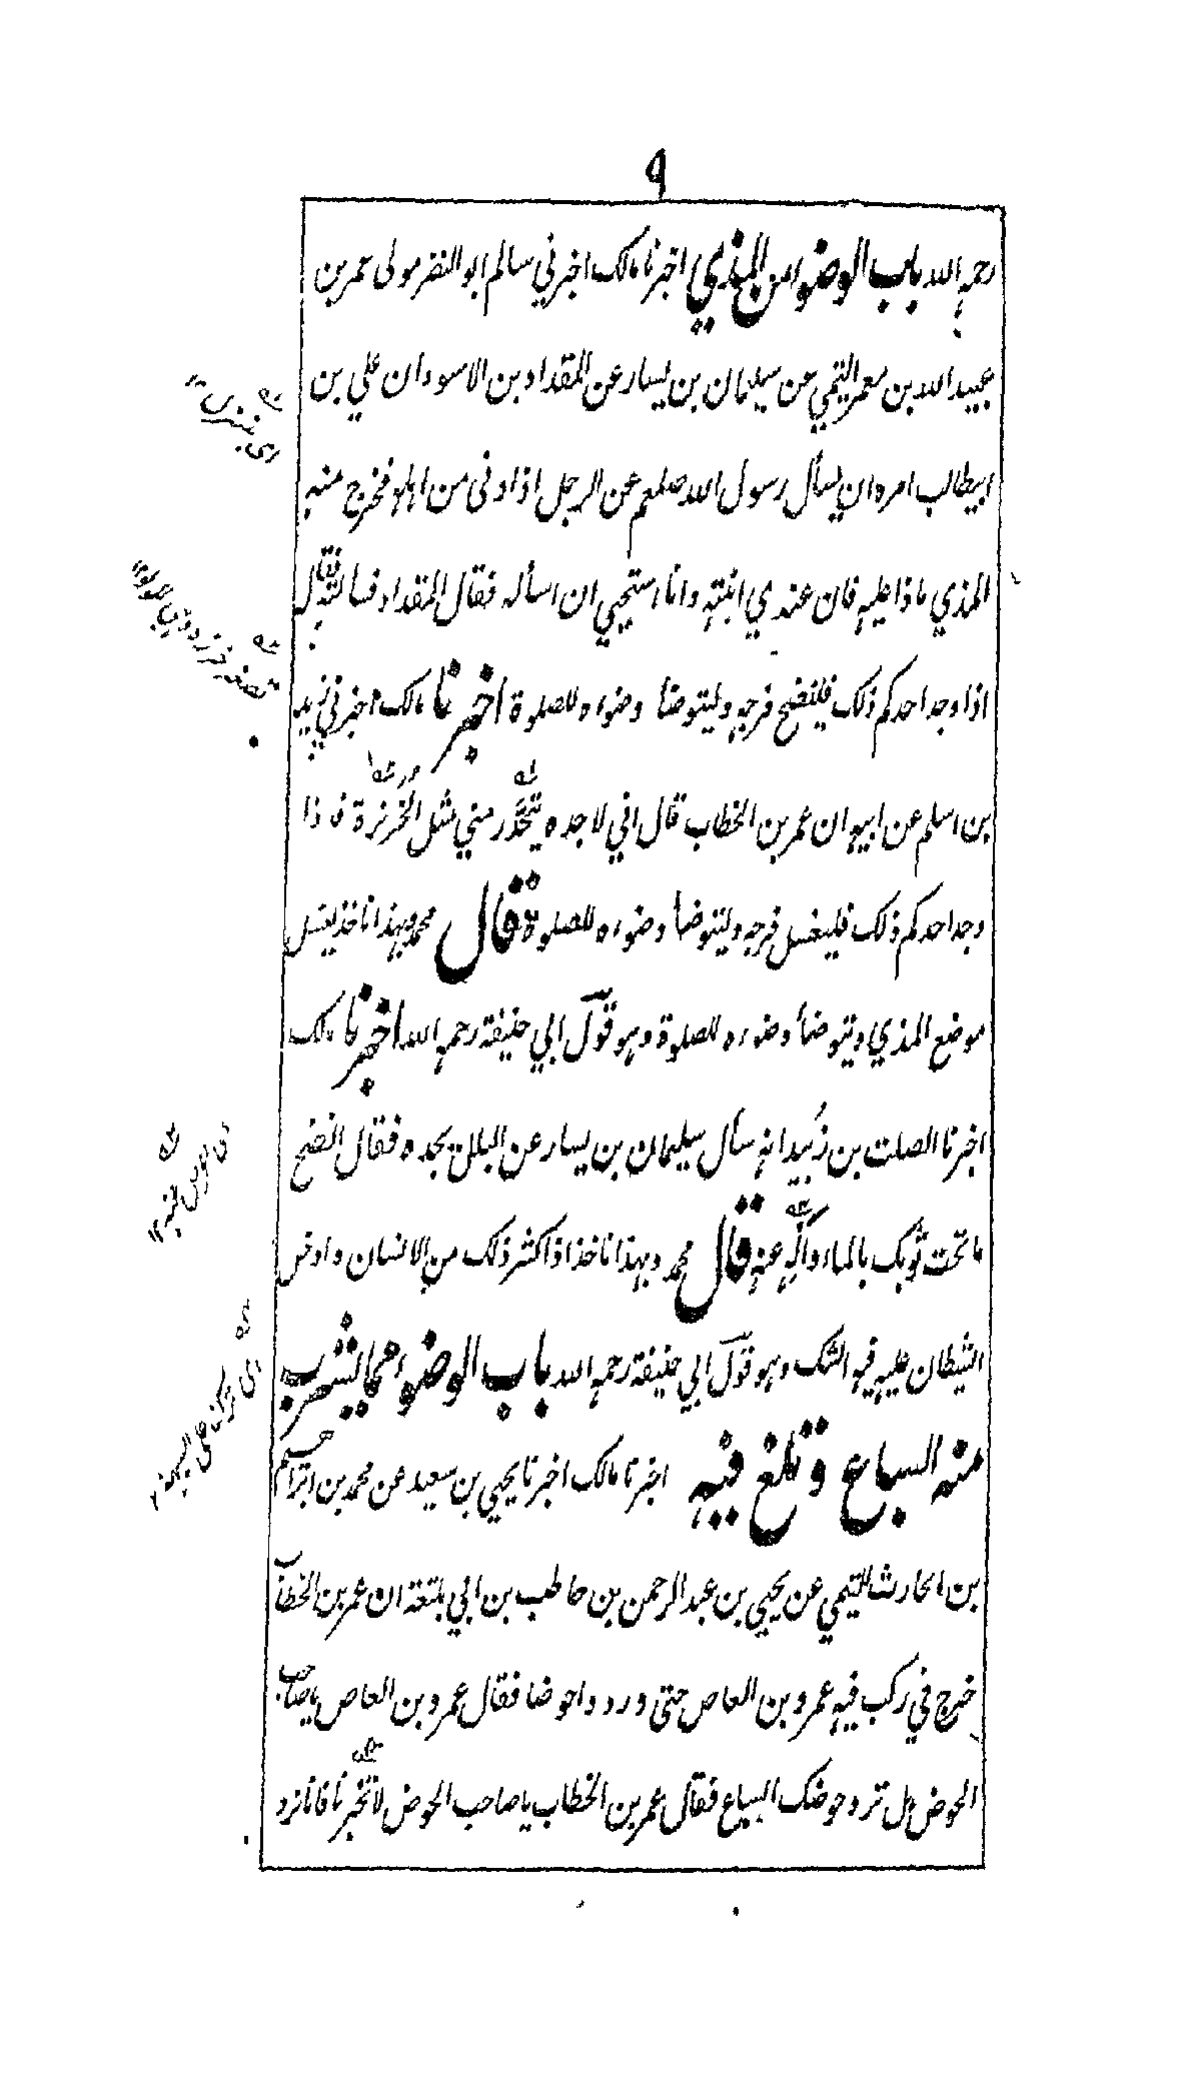 ٩
رحمہ اللہ باب الوضوء من المذي اخبرنا مالك اخبرني سالم ابو النضر مولى عمر بن
عبيد الله بن معمر التيمي عن سليمان بن يسار عن المقداد بن الاسود ان علي بن
ابيطالب امره ان يسأل رسول الله صلعم عن الرجل اذا دنى من اهله فخرج منه
المذي ماذا عليه فان عندي ابنته وانا استحيي ان اسأله فقال المقداد فسألته فقال
اذا وجد احدكم ذلك فلينضح فرجه وليتوضأ وضوءه للصلوة اخبرنا مالك اخبرني زيد
بن اسلم عن ابيه ان عمر بن الخطاب قال اني لاجده يتحدّر مني مثل الخُرَيزة فاذا
وجد احدكم ذلك فليغسل فرجه وليتوضأ وضوءه للصلوة قال محمد وبهذا ناخذ يغسل
موضع المذي ويتوضأ وضوءه للصلوة وهو قول ابي حنيفة رحمه الله اخبرنا مالك
اخبرنا الصلت بن زُبيد انه سأل سليمان بن يسار عن البلل يجده فقال انضح
ما تحت ثوبك بالماء واله عنه قال محمد وبهذا ناخذ اذا كثر ذلك من الانسان وادخل
الشيطان عليه فيه الشك وهو قول ابي حنيفة رحمه الله باب الوضوء مما يشرب
منه السباع وتلغ فيه اخبرنا مالك اخبرنا يحيي بن سعيد عن محمد بن ابراهيم
بن الحارث التيمي عن يحيي بن عبد الرحمن بن حاطب بن ابي بلتعة ان عمر بن الخطاب
خرج في ركب فيه عمرو بن العاص حتى وردوا حوضا فقال عمرو بن العاص يا صاحب
الحوض هل ترد حوضك السباع فقال عمر بن الخطاب يا صاحب الحوض لا تخبرنا فانا نرد